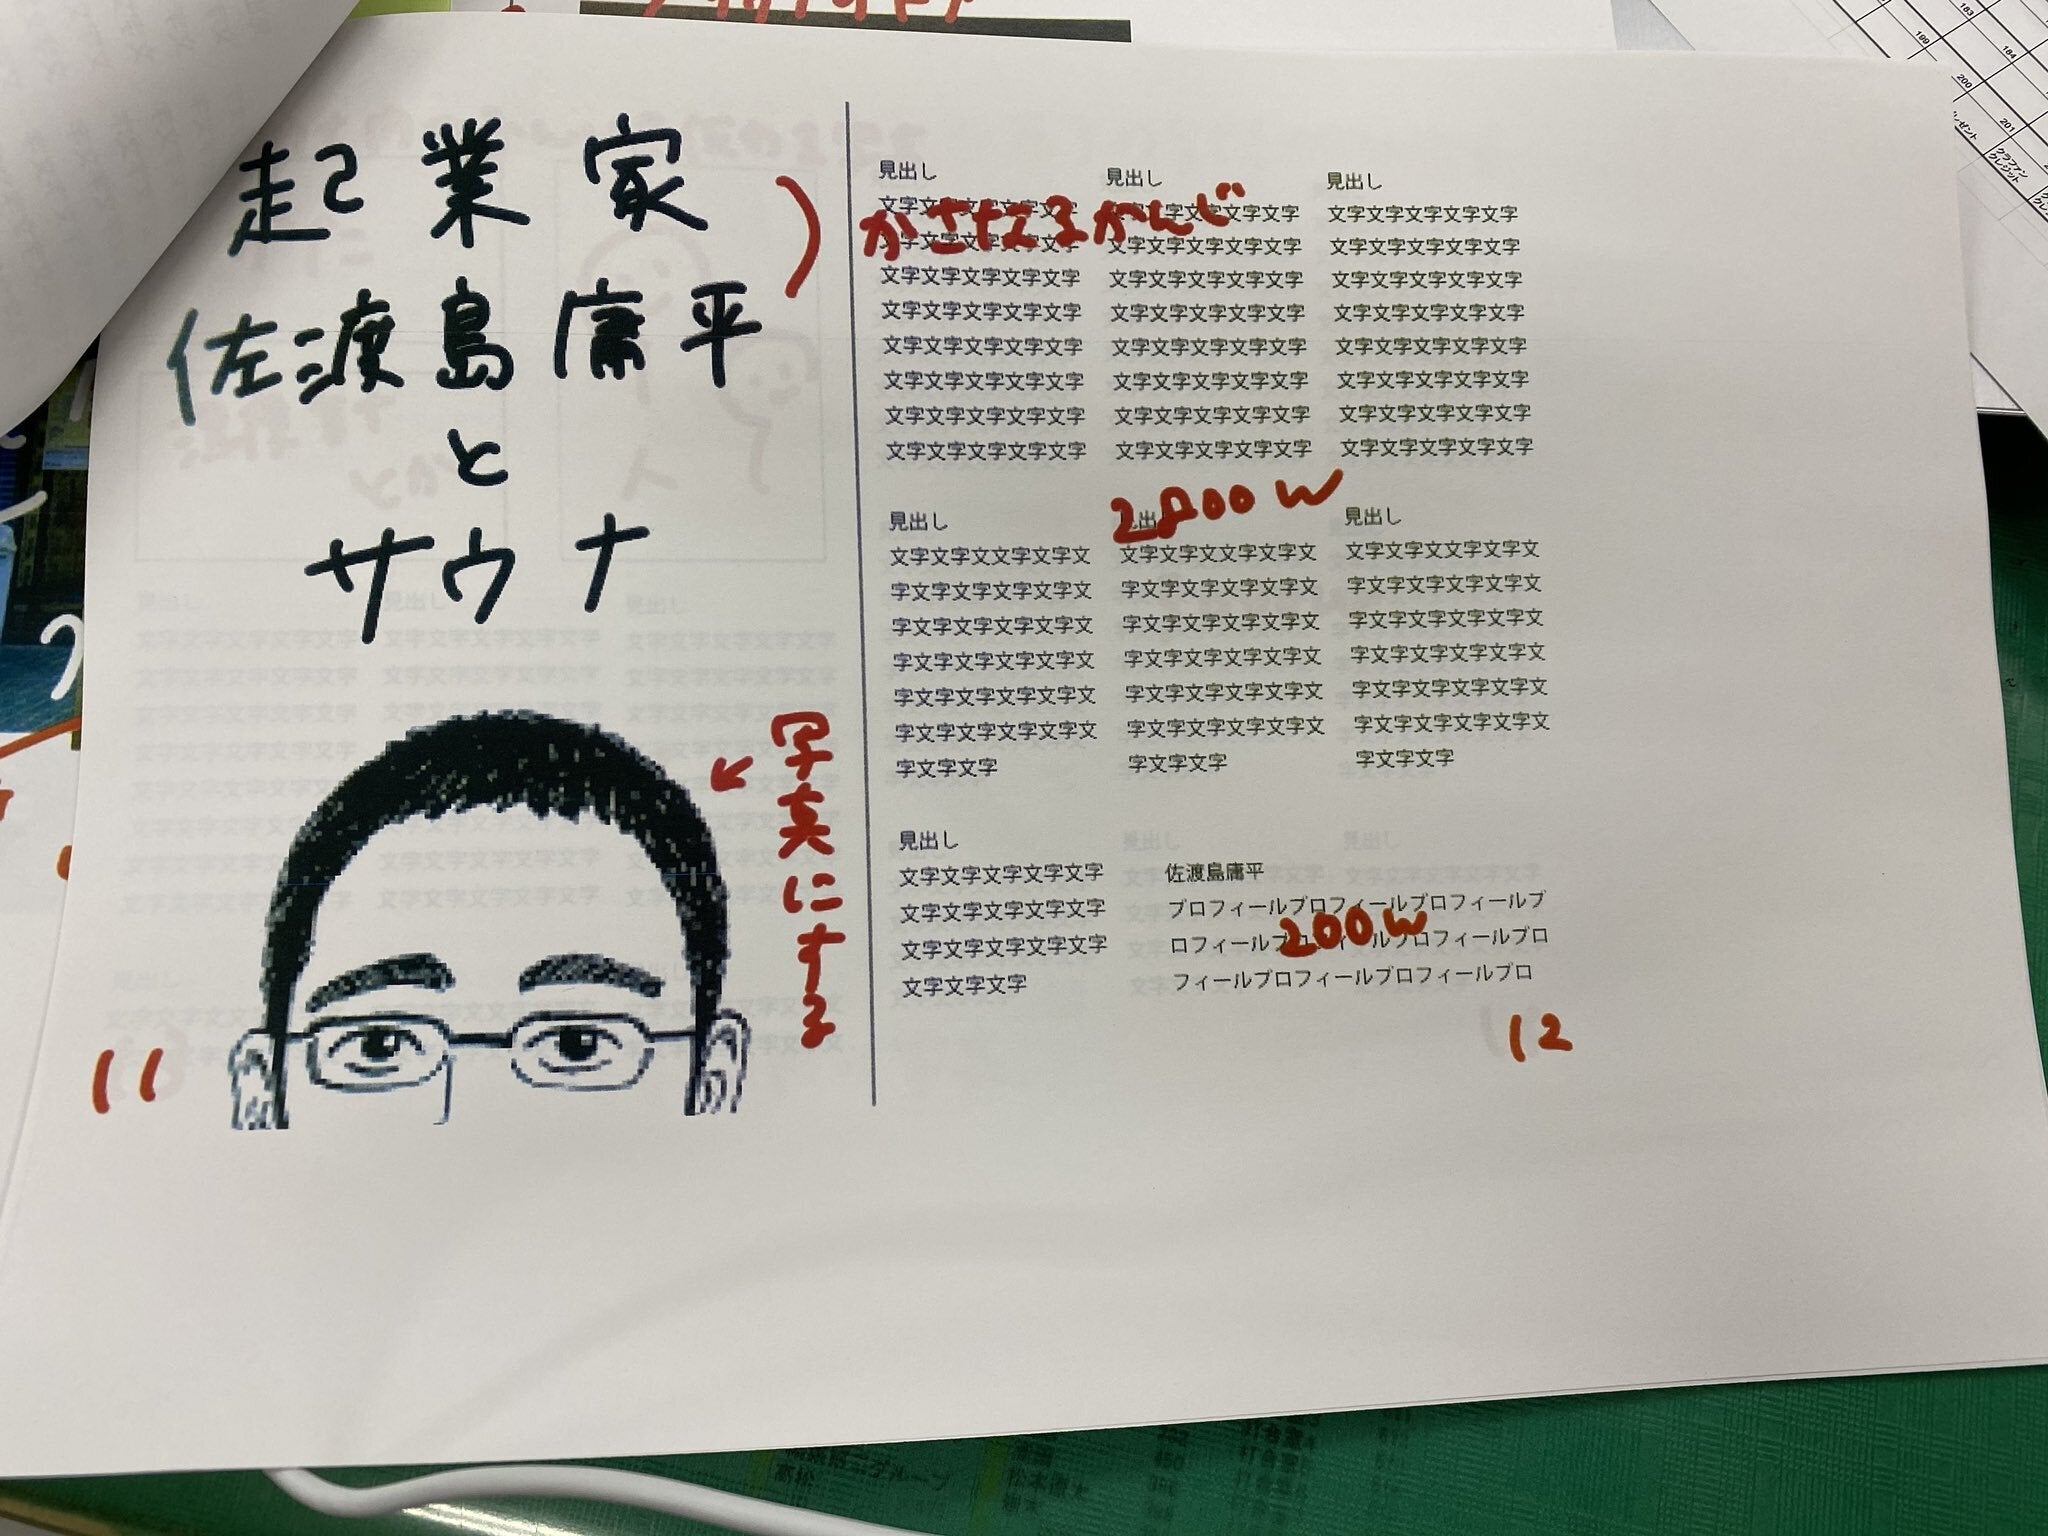 起業家
佐渡島庸平
と
サウナ
写真にする
11
かさねるかんじ
見出し
文字文字文字文字文字
文字文字文字文字文字
文字文字文字文字文字
文字文字文字文字文字
文字文字文字文字文字
文字文字文字文字文字
文字文字文字文字文字
文字文字文字文字文字
見出し
文字文字文字文字文字
文字文字文字文字文字
文字文字文字文字文字
文字文字文字文字文字
文字文字文字文字文字
文字文字文字文字文字
文字文字文字文字文字
文字文字文字文字文字
見出し
文字文字文字文字文字
文字文字文字文字文字
文字文字文字文字文字
文字文字文字文字文字
文字文字文字文字文字
文字文字文字文字文字
文字文字文字文字文字
文字文字文字文字文字
2800W
見出し
文字文字文文字文字文
字文字文字文字文字文
字文字文字文字文字文
字文字文字文字文字文
字文字文字文字文字文
字文字文字文字文字文
字文字文字
見出し
文字文字文文字文字文
字文字文字文字文字文
字文字文字文字文字文
字文字文字文字文字文
字文字文字文字文字文
字文字文字文字文字文
字文字文字
見出し
文字文字文文字文字文
字文字文字文字文字文
字文字文字文字文字文
字文字文字文字文字文
字文字文字文字文字文
字文字文字文字文字文
字文字文字
見出し
文字文字文字文字文字
文字文字文字文字文字
文字文字文字文字文字
文字文字文字
佐渡島庸平
プロフィールプロフィールプロフィールプ
ロフィールプロフィールプロフィールプロ
フィールプロフィールプロフィールプロ
200W
12
183
184
199
200
201
クラファン
クレジット